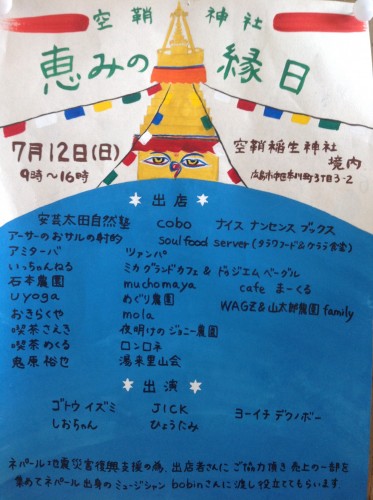 空鞘神社
恵みの縁日
7月12日(日)
9時〜16時
空鞘稲生神社
境内
広島市中区本川町3丁目3-2
出店
安芸太田自然塾 cobo ナイス ナンセンス ブックス
アーサーのおサルの射的 soul food server (タラワフード&ケララ食堂)
アミターバ ツァンパ
いっちゃんねる ミカグランドカフェ & ドゥジエム ベーグル
石本農園 muchomaya cafe まーくる
uyoga めぐり農園
おきらくや mola WAGZ&山太郎農園 family
喫茶さえき 夜明けのジョニー農園
喫茶めくる ロンロネ
鬼原裕也 湯来里山会
出演
ゴトウイズミ JICK ヨーイチ デクノボー
しおちゃん ひょうたみ
ネパール地震災害復興支援の為、出店者さんにご協力頂き売上の一部を
集めてネパール出身のミュージシャン bobinさんに渡し役立ててもらいます。